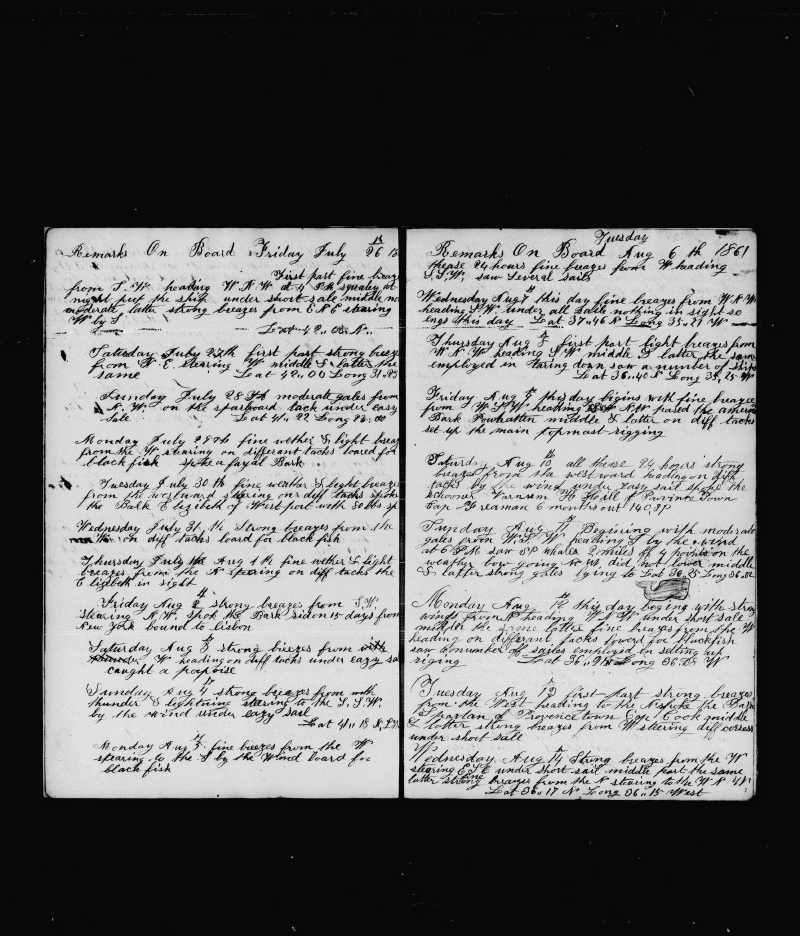 Remarks On Board Friday July 26 18
First part fine breaz
from S.W. heading W N W at 4 P.M. squaley at
night put the ship under short sale middle mo
moderate, latter strong breaze from E N E stearing
W by S
Lat 42,,00 N,,
Saturday July 27th first part strong breez
from N. E. stearing W middle & latter the
same Lat 42,,00 Long 31,,23
Sunday July 28th moderate gales from
N. W. on the starboard tack under eazy
Sale Lat 41,, 22 Long
Monday July 29th fine wether & light breaz
from the W stearing on different tacks loard for
black fish spoke a fayal Bark
Tuesday July 30th fine weather & light breazes
from the westward stearing on diff tacks spoke
the Bark Elizibeth of West port with 50 bbs sp
Wednesday July 31,th Strong breazes from the
W on diff tacks loard for black fish
Thursday Aug 1th fine wether & light
breazes from the N stearing on diff tacks the
Elizbeth in sight
Friday Aug 2th strong breezes from S.W.
stearing N.W. spok the Bark 15 days from
New York bound to Lisbon
Saturday Aug 3th strong breezes from
W heading on diff tacks under eazy sa
caught a porpoise
Sunday Aug 4 strong breazes from with
thunder & lightning stearing to the S.S.W.
by the wind under eazy sail
Lat 41,, 18 N,
Monday Aug 5th fine breezes from the W
stearing to the S by the Wind loard for
black fish
Tuesday
Remarks On Board Aug 6 th 1861
these 24 hours fine breazes from W heading
S.S.W. saw Several Sails
Wednesday Aug 7th this day fine breazes from W N W
heading S.W. under all sale nothing in sight so
ends this day Lat 37,,46 N Long 35,,21 W
Thursday Aug 8th first part light breazes from
W N W heading S W middle & latter the same
employed in taring down saw a number of ships
Lat 36,,40 N Long 35,,25 W
Friday Aug 9th this day bigins with fine breazes
from W S W heading N W pased the american
Bark Powhatten middle & latter on diff tacks
set up the main topmast rigging
Saturday Aug 10th all these 24 hours strong
breazes from the westward heading on diff
tacks by the wind under eazy sail spoke the
schooner Varnum H Hill of Province Town
Cap Freaman 6 months out 140 SP
Sunday Aug 11th Begining with moderate
gales from W.S.W. heading S by the wind
at 6 P.M. saw SP whales 2 miles of 4 points on the
weather bow going N W. did not lower middle
& latter strong gales lying to Lat 36,,25 Long 36,,
Monday Aug 12th this day begins with strong
winds from N heading W N W under short sale
middle the same latter fine breazes from the W
heading on different tacks lowerd for blackfish
saw a number off sailes employed in setting up
riging Lat 36,, Long 36,, W
Tuesday Aug 13th first part strong breazes
from the West heading to the N spoke the Bark
Spartan of Provencetown Cap Cook middle
& latter strong breazes from W steering diff corses
under short sale
Wednesday Aug 14th Strong breazes from the W
stearing E S E under short sail middle part the same
latter strong breazes from the N stearing to the W N W
Lat 36,, 17 N Long 36,, 15 West